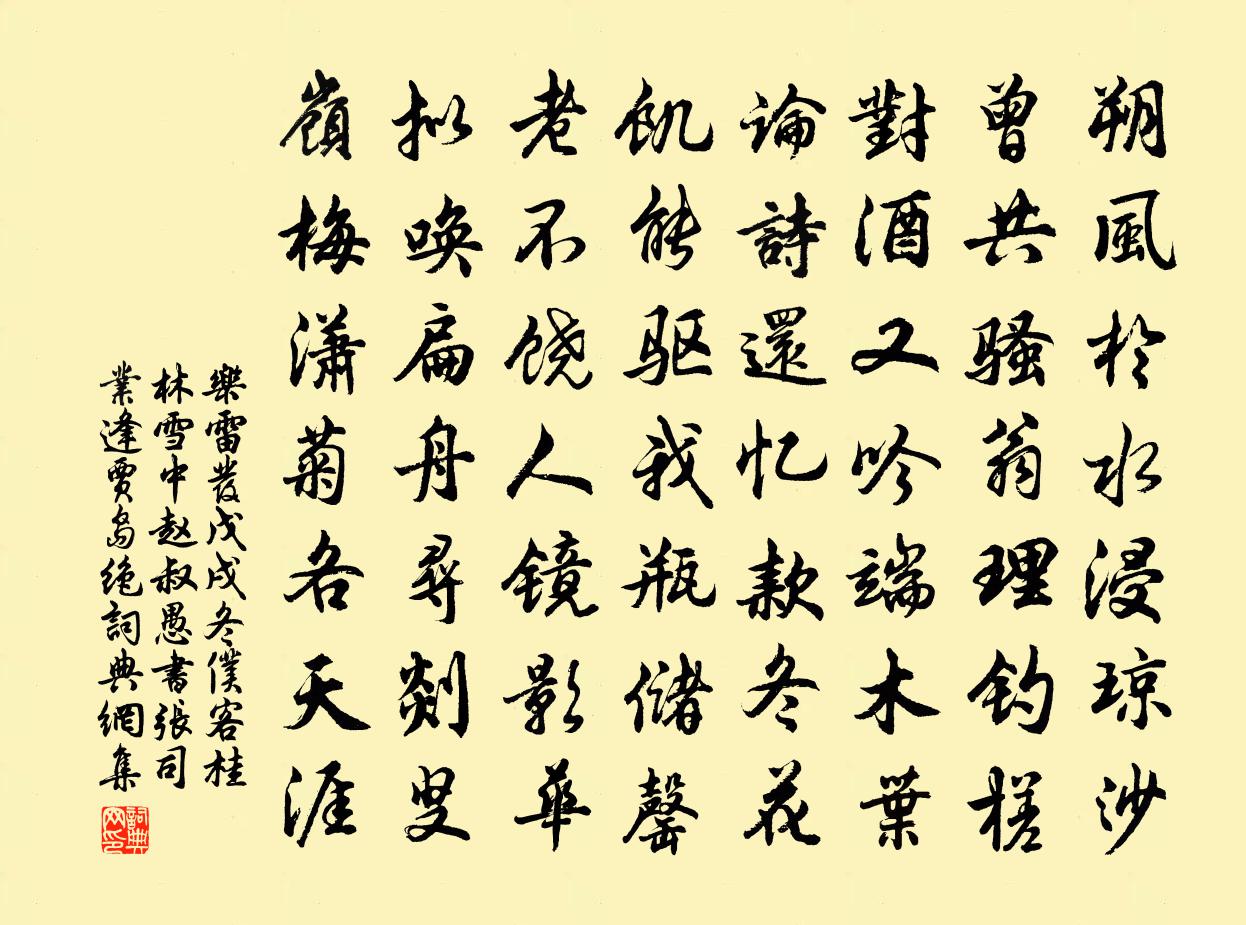 朔風於水浸琼沙
曾共骚翁理钓槎
對酒又吟端木葉
論詩還忆款冬花
飢能驱我瓶儲罄
老不饶人镜影華
拟唤扁舟尋剡叟
嶺梅潇菊各天涯
樂雷發戊戌冬僕客桂
林雪中赵叔愚書張司
業逢賈島绝詞典網集
詞典网印